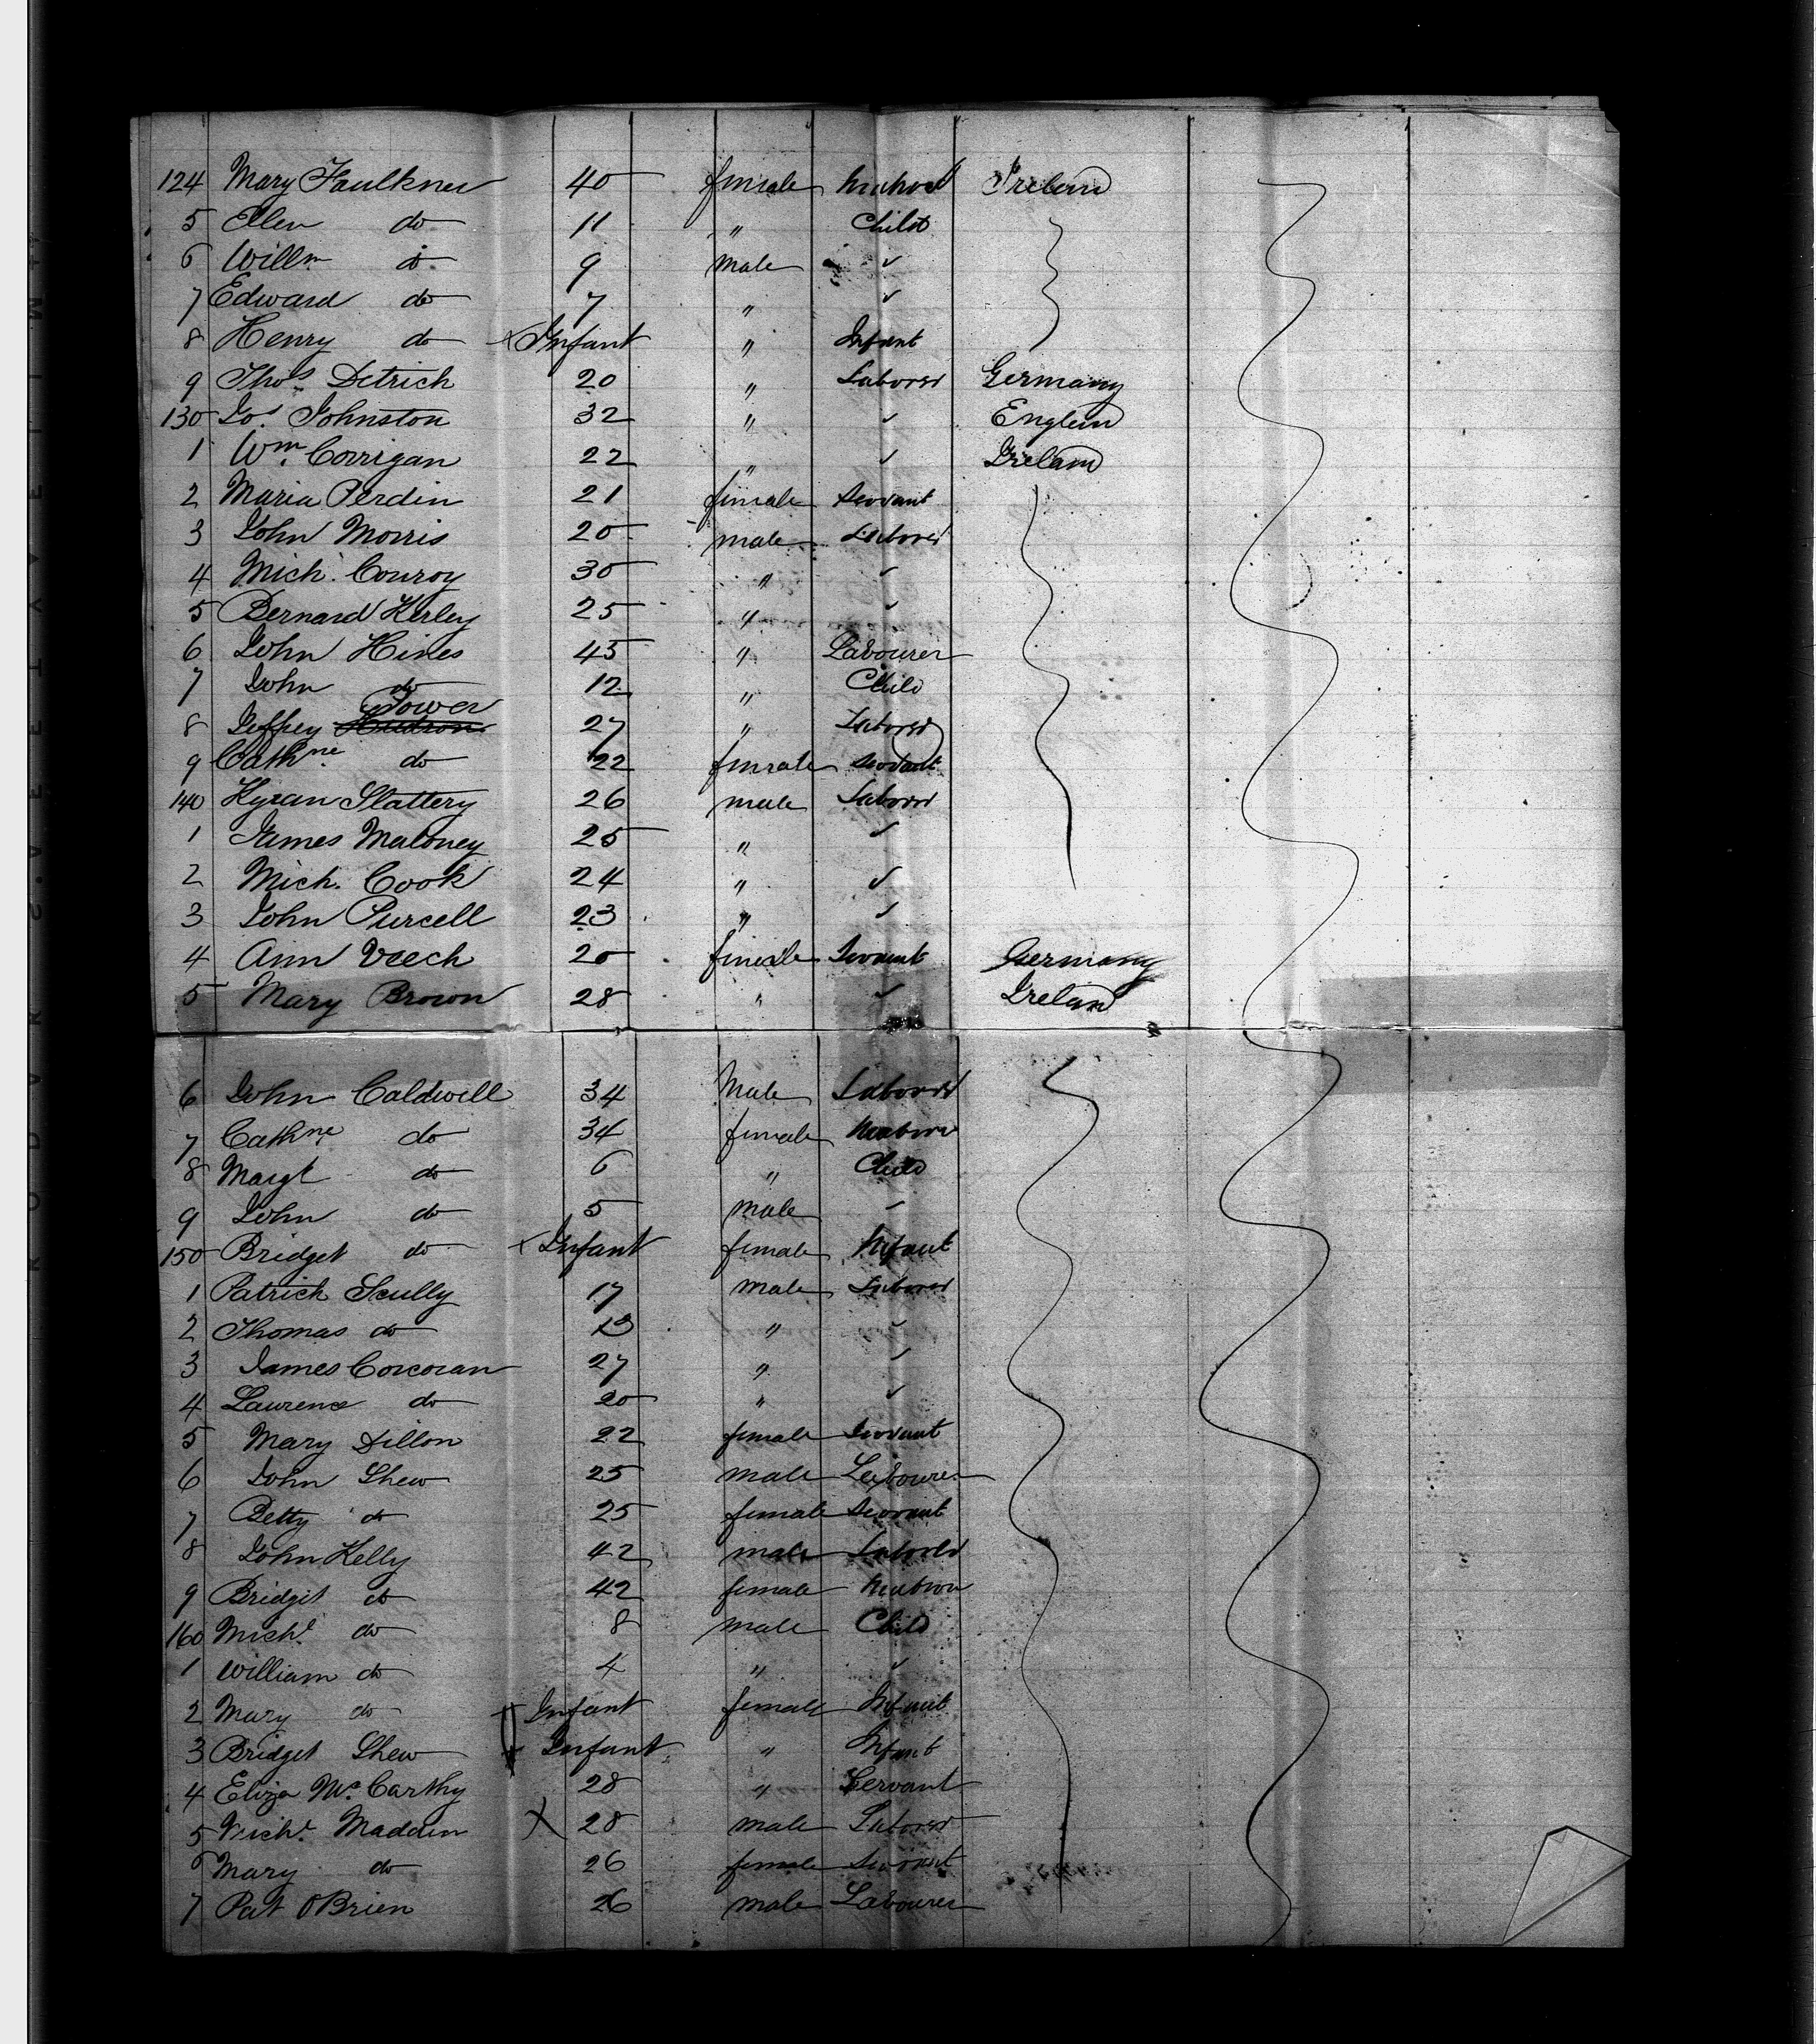 124 Mary Faulkner 40 female Matron Ireland
5 Ellen do 11 " Child
6 Willm do 9 male ✓
7 Edward do 7 " ✓
8 Henry do x Infant " Infant
9 Thos Detrich 20 " Laborer Germany
130 Jos Johnston 32 " ✓ England
1 Wm Corrigan 22 " ✓ Ireland
2 Maria Perdin 21 female Servant
3 John Morris 20 male Laborer
4 Mich. Conroy 30 " ✓
5 Bernard Kerley 25 " ✓
6 John Hines 45 " Labourer
7 John do 12 " Child
8 Jeffrey Hudson Power 27 " Laborer
9 Cathne do 22 female Servant
140 Kyran Slattery 26 male Laborer
1 James Maloney 25 " ✓
2 Mich. Cook 24 " ✓
3 John Purcell 23 " ✓
4 Ann Veech 20 female Servant Germany
5 Mary Brown 28 " ✓ Ireland
6 John Caldwell 34 Male Laborer
7 Cathne do 34 female Matron
8 Margt do 6 " Child
9 John do 5 male ✓
150 Bridget do x Infant female Infant
1 Patrick Scully 17 male Laborer
2 Thomas do 13 " ✓
3 James Corcoran 27 " ✓
4 Laurence do 20 " ✓
5 Mary Dillon 22 female Servant
6 John Shew 25 male Labourer
7 Betty do 25 female Servant
8 John Kelly 42 male Laborer
9 Bridgit do 42 female Matron
160 Michl do 8 male Child
1 William do 4 " ✓
2 Mary do Infant female Infant
3 Bridget Shew Infant " Infant
4 Eliza McCarthy 28 " Servant
5 Michl Madden X 28 male Laborer
6 Mary do 26 female Servant
7 Pat OBrien 26 male Labourer